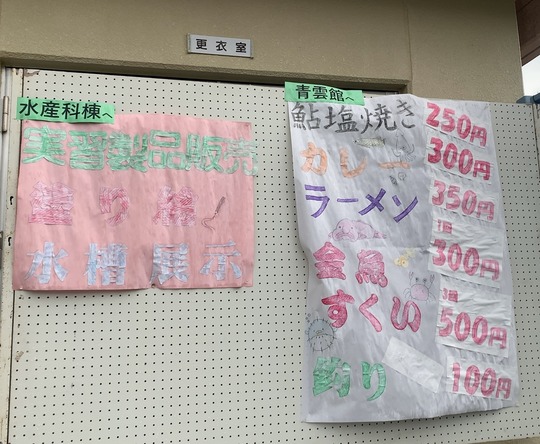 更衣室
水産科棟へ
実習製品販売
塗り絵
水槽展示
青雲館へ
鮎塩焼き 250円
カレー 300円
ラーメン 350円
金魚すくい 1回 300円
3回 500円
釣り 100円